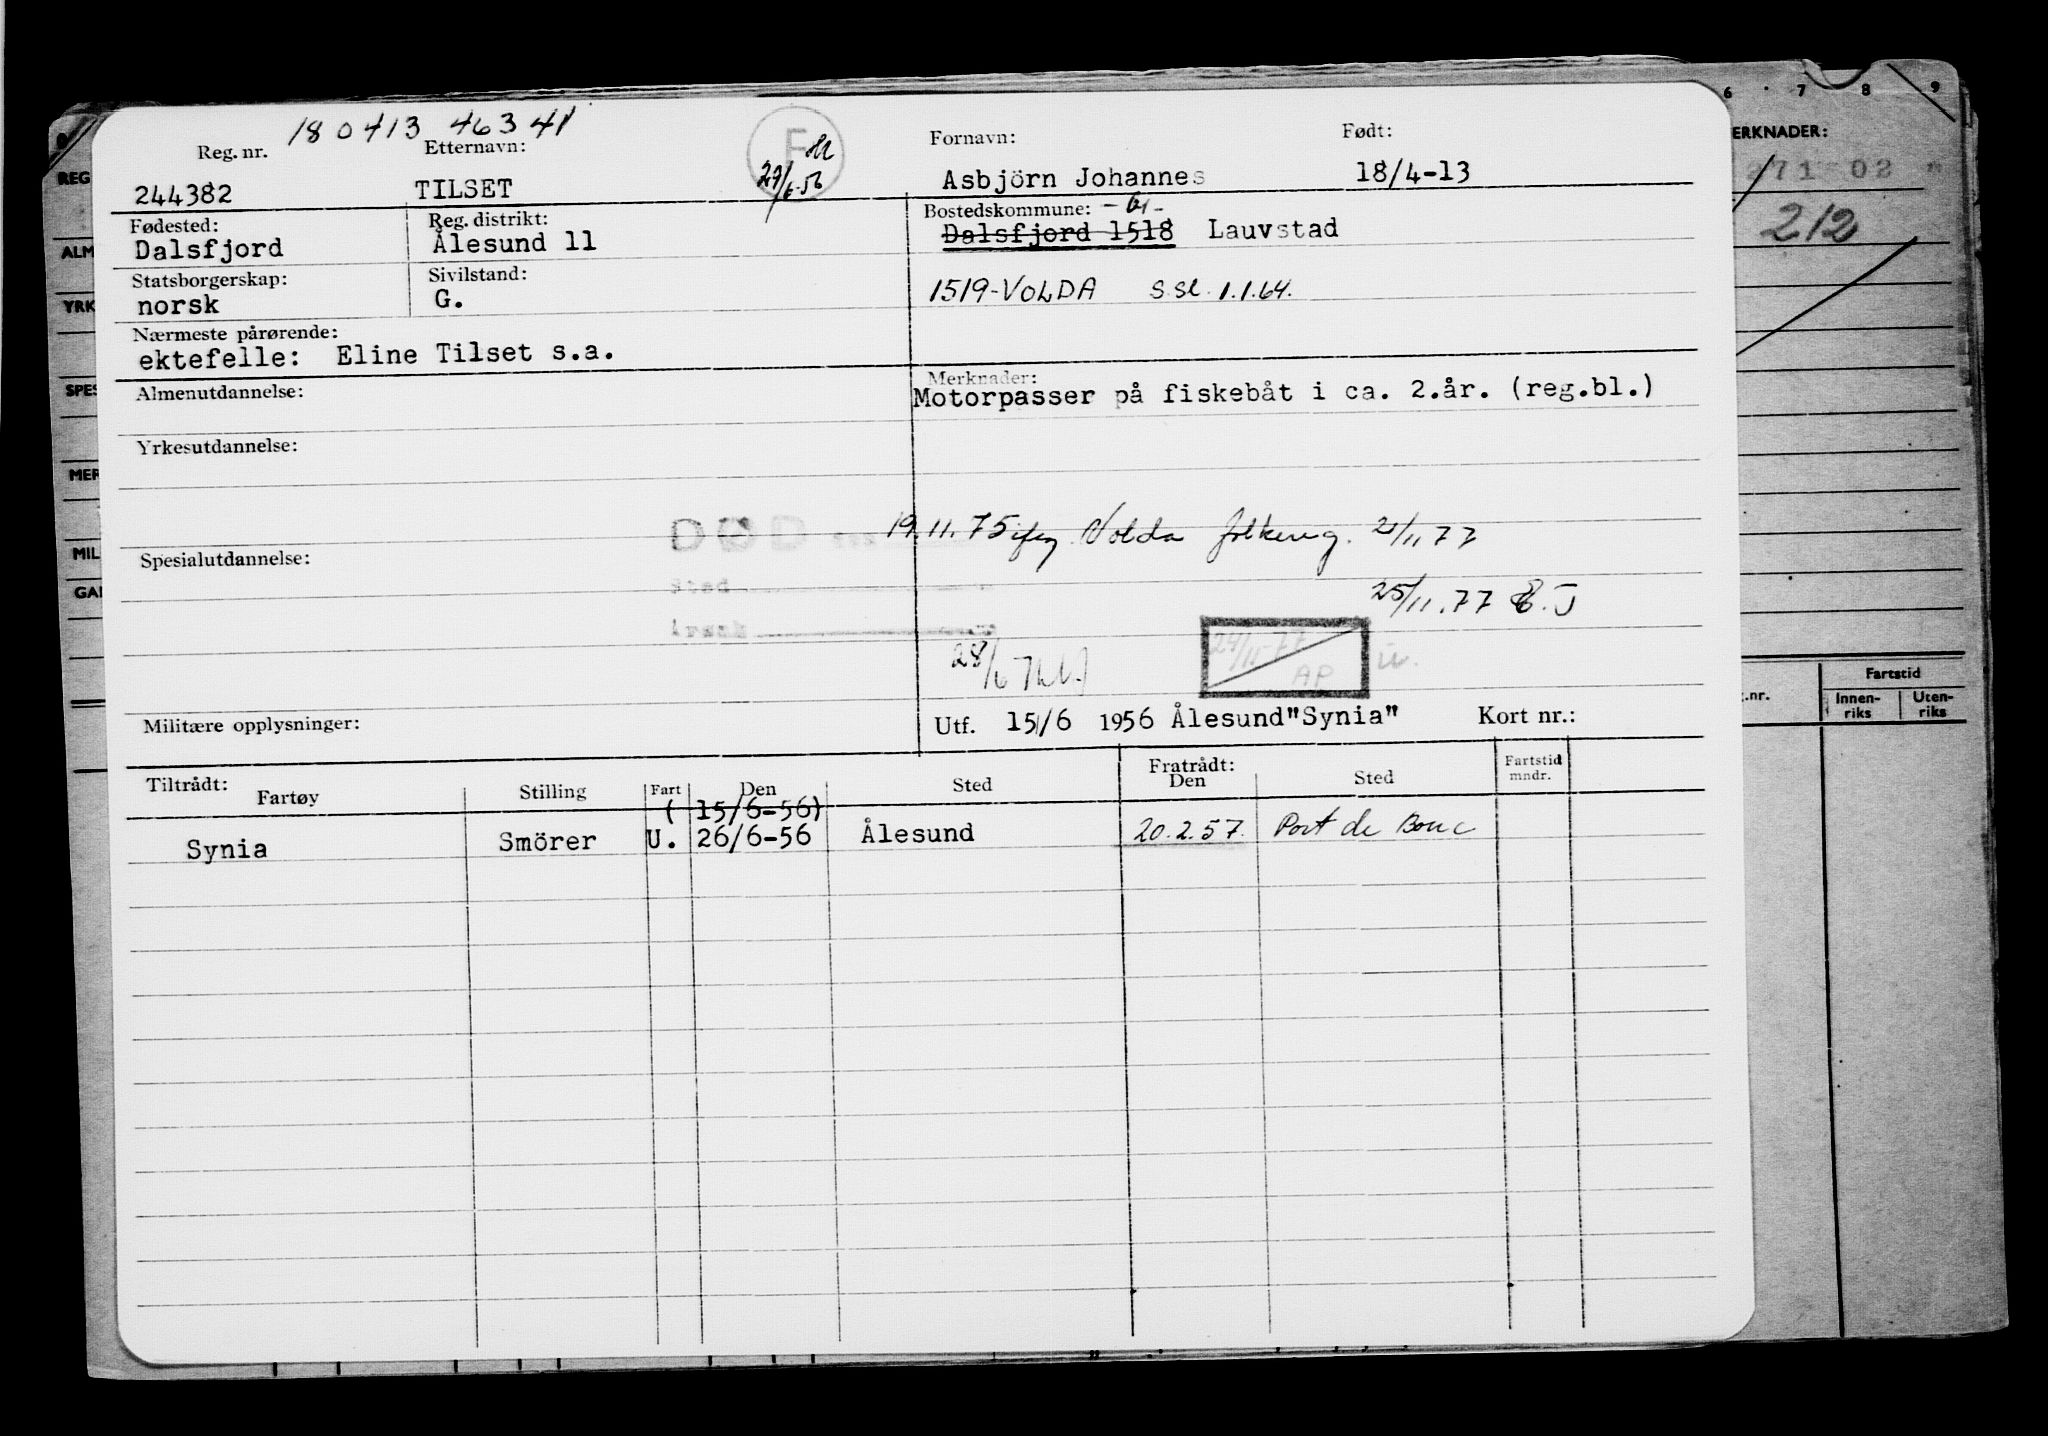 180413 46341
Reg. nr. Etternavn: Fornavn: Født:
244382 TILSET 29/6-56 Asbjörn Johannes 18/4-13
Fødested: Reg. distrikt: Bostedskommune:
Dalsfjord Ålesund 11 Dalsfjord 1518 Lauvstad
Statsborgerskap: Sivilstand:
norsk G. 1519-VOLDA s.sl. 1.1.64.
Nærmeste pårørende:
ektefelle: Eline Tilset s.a.
Almenutdannelse: Merknader:
Motorpasser på fiskebåt i ca. 2.år. (reg.bl.)
Yrkesutdannelse:
DØD 19.11.75 ifg. Volda folkereg. 21/11 77
Spesialutdannelse:
Sted
Årsak
25/11.77
24/11-77
AP
28/6
Militære opplysninger: Utf. 15/6 1956 Ålesund"Synia" Kort nr.:
Tiltrådt: Fratrådt: Fartstid
Fartøy Stilling Fart Den Sted Den Sted mndr.
(15/6-56)
Synia Smörer U. 26/6-56 Ålesund 20.2.57. Port de Bouc
6 7 8 9
ERKNADER:
271 02
212
REG
ALM
YRK
SPES
MER
MIL
GAI
.nr. Fartstid
Innen-riks Uten-riks